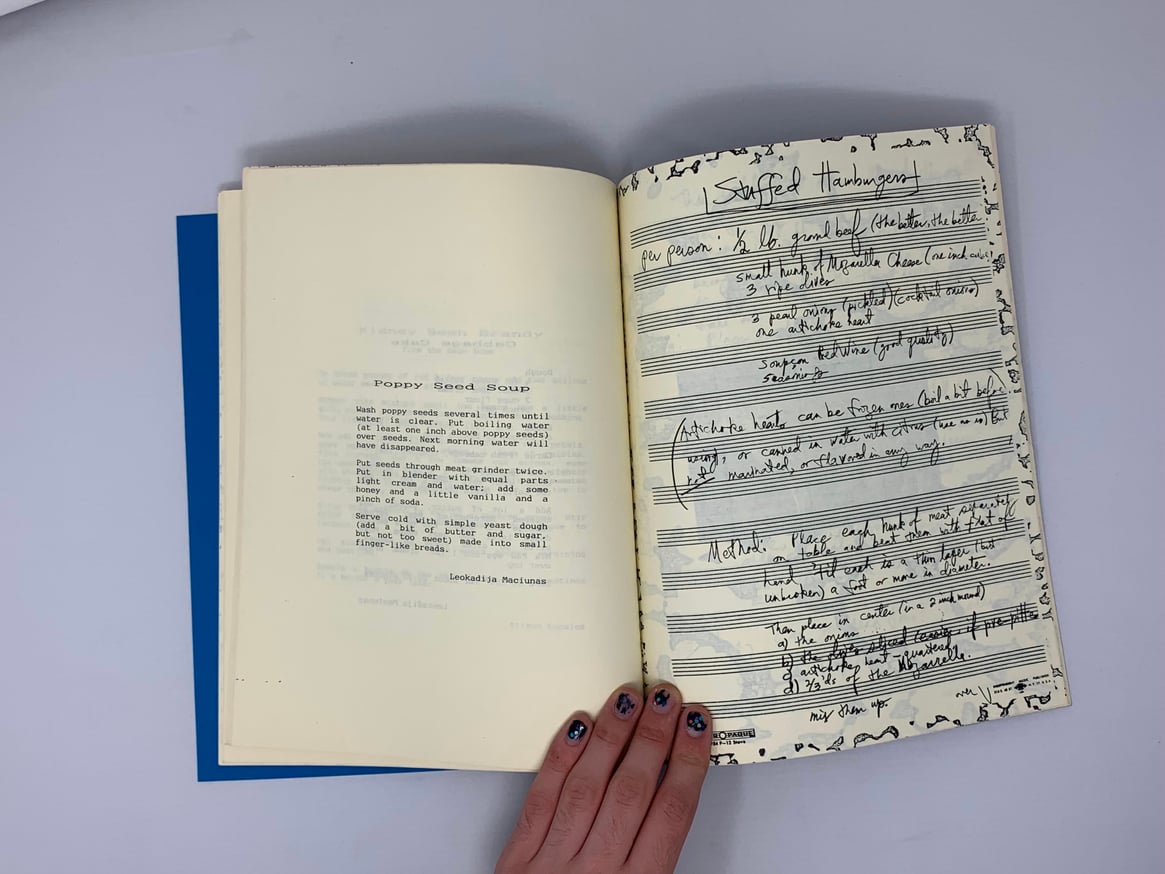 Poppy Seed Soup
Wash poppy seeds several times until
water is clear. Put boiling water
(at least one inch above poppy seeds)
over seeds. Next morning water will
have disappeared.
Put seeds through meat grinder twice.
Put in blender with equal parts
light cream and water; add some
honey and a little vanilla and a
pinch of soda.
Serve cold with simple yeast dough
(add a bit of butter and sugar,
but not too sweet) made into small
finger-like breads.
Leokadija Maciunas
Stuffed Hamburgers
per person: ½ lb. ground beef (the better, the better
small hunk of Mozarella Cheese (one inch
3 ripe olives
3 pearl onions (pickled) (cocktail onions)
one artichoke heart
Red Wine (good quality)
(Artichoke hearts can be frozen ones (boil a bit before
using), or canned in water with citrus (use as is) But
not marinated, or flavored in any way.
Method: Place each hunk of meat separately
on table and beat them with flat of
hand 'til each is a thin layer (but
unbroken) a foot or more in diameter.
Then place in center (in a 2 inch mound)
a) the onions
b) the olives sliced (easier if pre-pitted
c) artichoke heart - quartered
d) 2/3'ds of the Mozzarella.
mix them up.
over